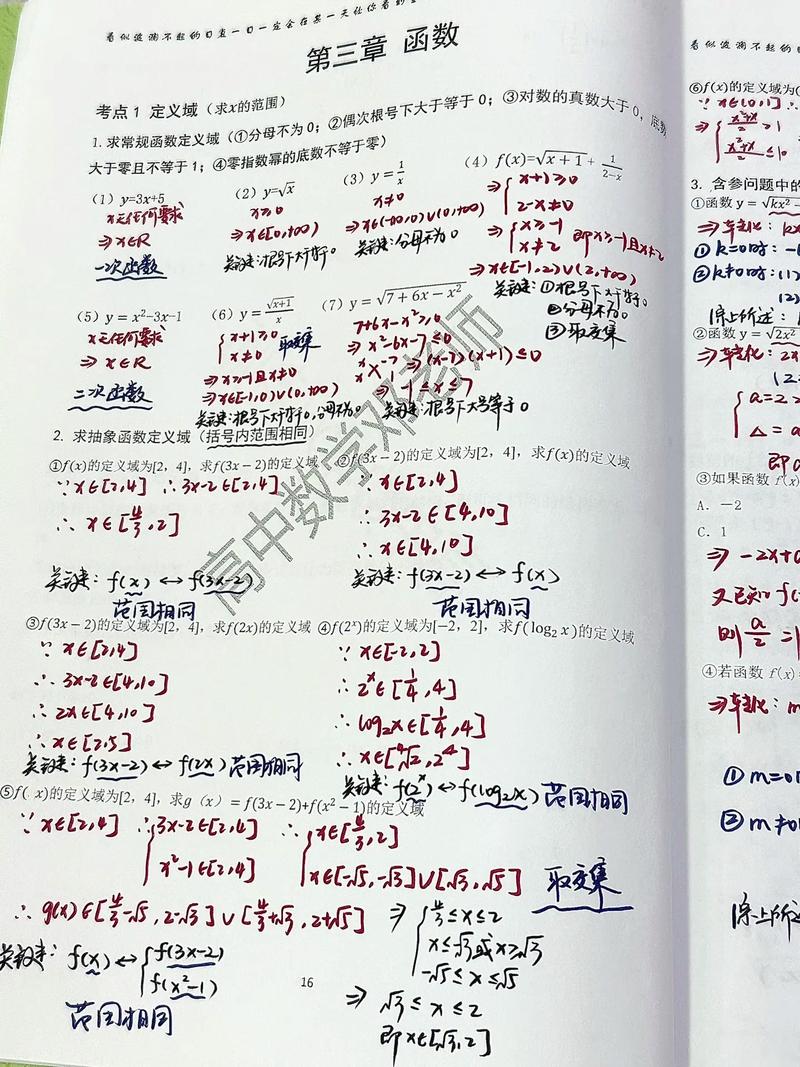 第三章 函数
考点1 定义域（求x的范围）
1.求常规函数定义域（①分母不为0；②偶次根号下大于等于0；③对数的真数大于0，底数
大于零且不等于1；④零指数幂的底数不等于零）
（1）y=3x+5
x无任何要求
⇒x∈R
一次函数
（2）y=√x
x≥0
⇒x∈[0,+∞)
关键: 根号下大于等于0。
（3）y = 1/x
x≠0
⇒x∈(-∞,0)∪(0,+∞)
关键: 分母不为0
（4）f(x)=√(x+1) + 1/(2-x)
⇒{x+1≥0
2-x≠0
⇒{x≥-1
x≠2 即x≥-1且x≠2
⇒x∈[-1,2)∪(2,+∞)
①根号下大于等于0。
②分母不为0。
③取交集
（5）y = x²-3x-1
x无任何要求
⇒x∈R
二次函数
（6）y = √(x+1)/x
{x+1≥0
x≠0 取交集
⇒x≥-1且x≠0
⇒[-1,0)∪(0,+∞)
根号下大于等于0,分母不为0。
（7）y = √(7+6x-x²)
7+6x-x²≥0
⇒x²-6x-7≤0
x -7
x 1 ⇒(x-7)(x+1)≤0
⇒-1≤x≤7
根号下大于等于0
2. 求抽象函数定义域（括号内范围相同）
①f(x)的定义域为[2，4]，求f(3x-2)的定义域
∵x∈[2,4] ∴3x-2∈[2,4]
∴x∈[4/3,2]
f(x)↔f(3x-2)
范围相同
②f(3x-2)的定义域为[2，4]，求f(x)的定义域
∵x∈[2,4]
∴3x-2∈[4,10]
∴x∈[4,10]
f(3x-2)↔f(x)
范围相同
③f(3x-2)的定义域为[2，4]，求f(2x)的定义域
∵x∈[2,4]
∴3x-2∈[4,10]
∴2x∈[4,10]
∴x∈[2,5]
f(3x-2)↔f(2x) 范围相同
④f(2ˣ)的定义域为[-2，2]，求f(log₂x)的定义域
∵x∈[-2,2]
∴2ˣ∈[1/4,4]
∴log₂x∈[1/4,4]
∴x∈[⁴√2,2⁴]
f(2ˣ)↔f(log₂x) 范围相同
⑤f(x)的定义域为[2，4]，求g（x）= f(3x-2)+f(x²-1)的定义域
∵x∈[2,4] ∴{3x-2∈[2,4] ∴{x∈[4/3,2]
x²-1∈[2,4] x∈[-√5,-√3]∪[√3,√5] 取交集
∴g(x)∈[4/3-√5,2-√3]∪[4/3+√3,2+√5]
⇒{4/3≤x≤2
x≤-√3或x≥√3
-√5≤x≤√5
⇒√3≤x≤2
即x∈[√3,2]
f(x)↔{f(3x-2)
f(x²-1)
范围相同
16
高中数学邓老师
⑥f(x)的定义域为
∵x∈[0,1]
3. 含参问题中的
①函数 y = √(kx²-
⇒转化:
①k=0时:
②k≠0时: (1)
(2)
综上所述:
②函数 y = √(2x²
⇒转化: 2x
③如果函数 f(x)
A. -2
C. 1
⇒ -2x+a
又已知 f(
则 a/2 =
④若函数 f(x)
⇒转化:
①m=0
②m≠0
综上所述